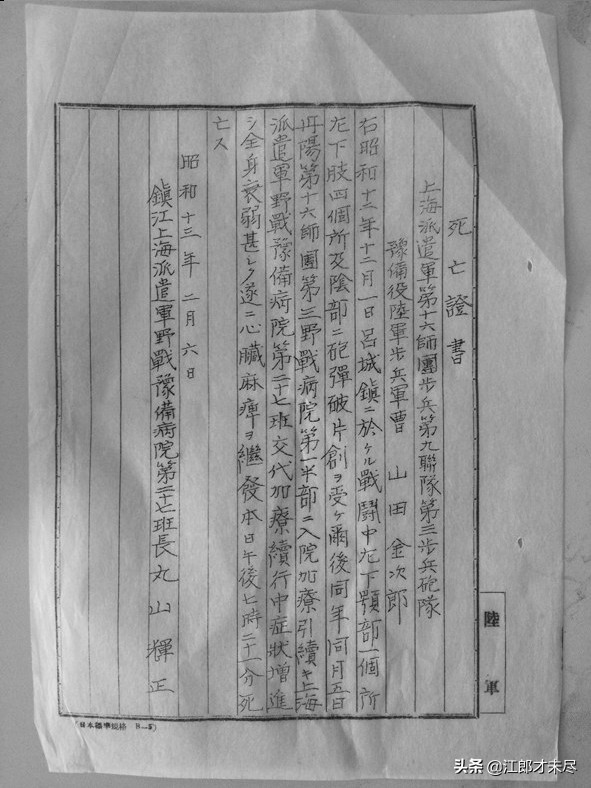 死亡證書
上海派遣軍第十六師團步兵第九聯隊第三步兵砲隊
豫備役陸軍步兵軍曹 山田金次郎
右昭和十二年十二月一日呂城鎮ニ於ケル戰鬪中左下顎部一個所
左下肢四個所及陰部ニ砲彈破片創ヲ受ケ爾後同年同月五日
丹陽第十六師團第三野戰病院第一半部ニ入院加療引續キ上海
派遣軍野戰豫備病院第二十七班交代加療續行中症狀增進
シ全身衰弱甚シク遂ニ心臟麻痺ヲ繼發本日午後七時二十一分死
亡ス
昭和十三年二月六日
鎮江上海派遣軍野戰豫備病院第二十七班長丸山輝正
陸軍
(日本標準規格 B—5)
头条 @江郎才未尽